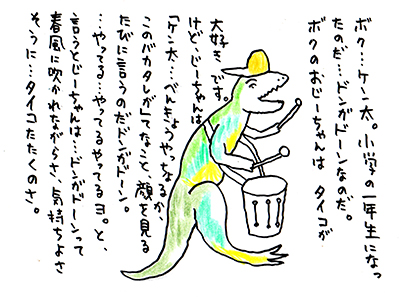 ボク…ケン太。小学の一年生になっ
たのだ…ドンがドーンなのだ。
ボクのおじーちゃんは タイコが
大好き、です。
けど、じーちゃんは
「ケン太…べんきょうやってなるか、
このバカタレが」てなこと、顔を見る
たびに言うのだドンがドーン。
…やってる…やってるやってるヨ。と、
言うとじーちゃんは…ドンがドーンって
春風に吹かれながらさ、気持ちよさ
そうに…タイコたたくのさ。